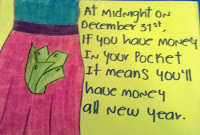 At Midnight On
December 31st,
If you have Money
In Your Pocket
It means you'll
have money
all New Year.